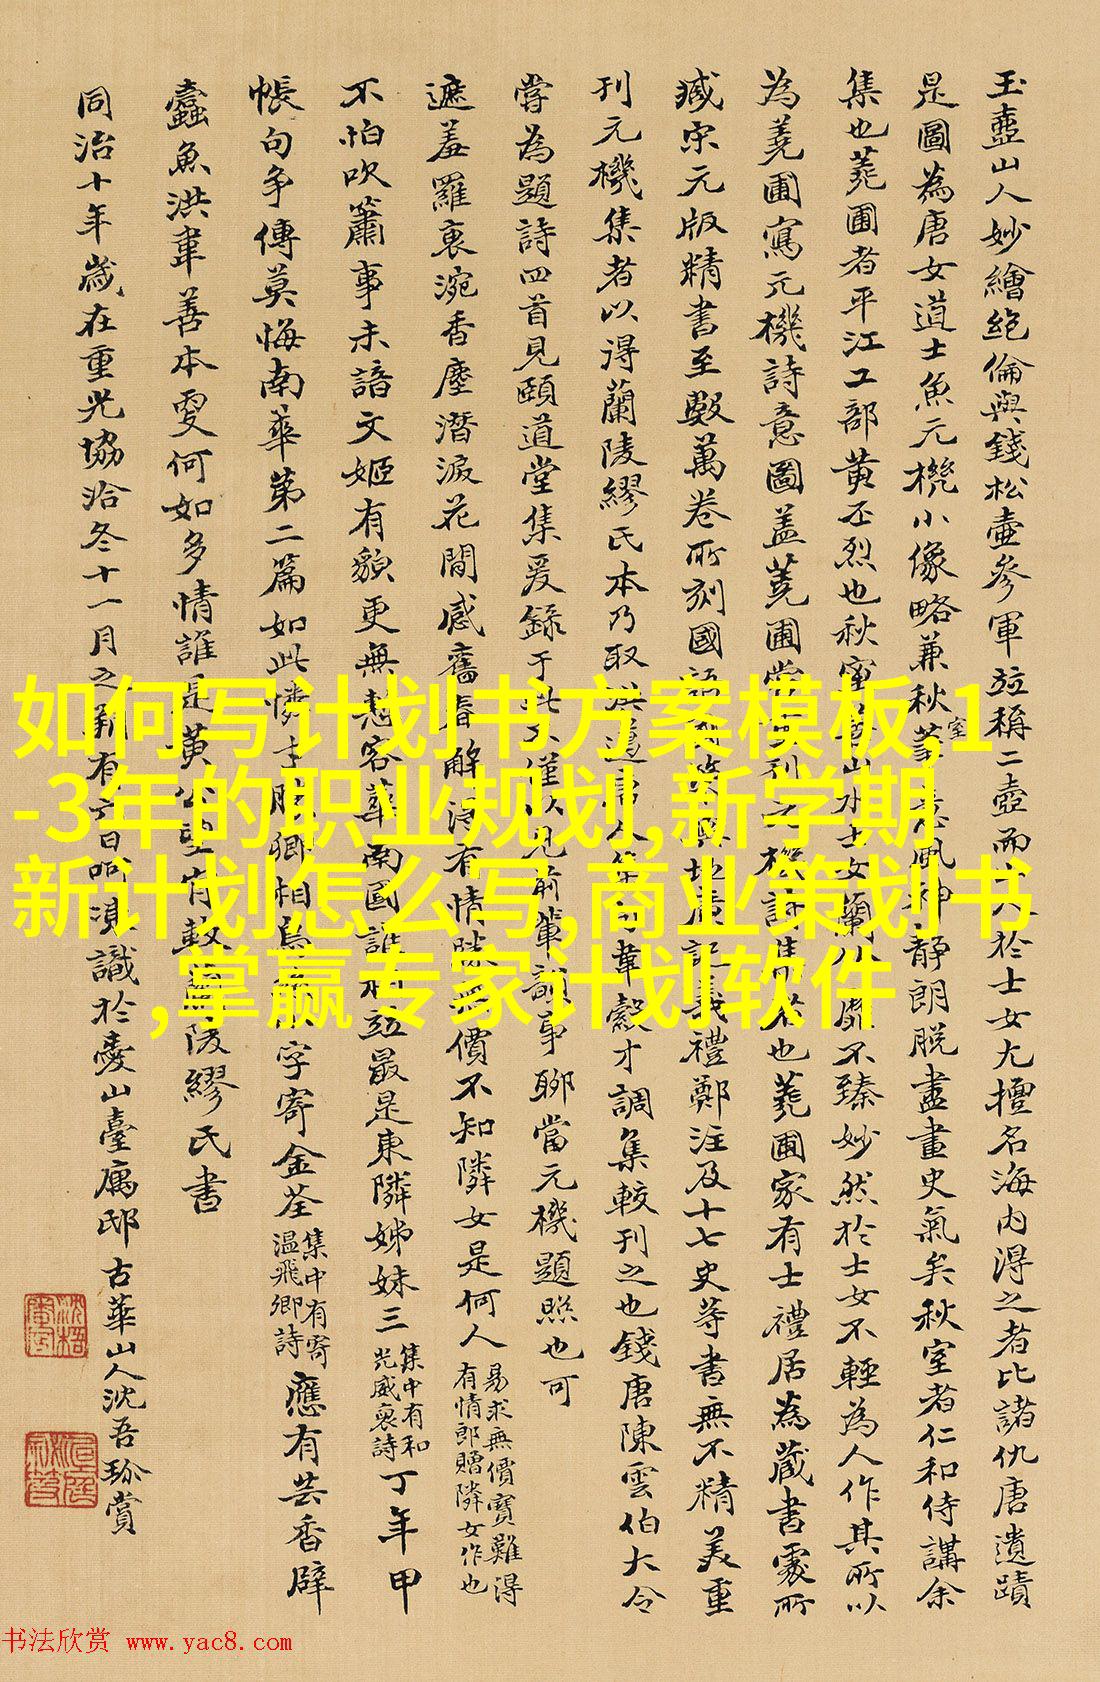 玉壺山人妙繪絕倫與錢松壺參軍竝稱二壺而於士女尤擅名海内得之者比諸仇唐遺蹟
是圖為唐女道士魚元機小像略兼秋室筆意風神静朗脱盡畫史氣矣秋室者仁和侍講余
集也蕘圃者平江工部黄丕烈也秋室善山水士女蘭竹靡不臻妙然於士女不輕為人作其所以
為蕘圃寫元機詩意圖蓋蕘圃嘗刊元機詩集者也蕘圃家有士禮居為藏書處所
臧宋元版精書至數萬卷所刻國語與地廣記義禮鄭注及十七史等書無不精美重
刊元機集者以得蘭陵繆氏本乃取洪邁唐人韋縠才調集較刊之也錢唐陳雲伯大令
嘗為題詩四首見頤道堂集爰錄于此不僅以見前輩韻事聊當元機題照也可
遮羞羅袠涴香塵潛淚花間感舊春解得有情無價不知隣女是何人
易求無價寶難得
有情郎贈隣女作也
不怕吹簫事未諳文姬有貌更無慙容華南國誰相竝最是東隣姊妹三
集中有和
光威裒詩
丁年甲
帳句争傳莫悔南華第二篇如此憐才勝卿相烏字寄金荃
集中有寄
温飛卿詩
應有芸香辟
蠹魚洪韋善本更何如多情誰是黄公望肯教蘭陵繆氏書
同治十年歲在重光協洽冬十一月之朔有六日識於臺寓邸古華山人沈吾珎賞
如何写计划书方案模板,1
-3年的职业规划,新学期
新计划怎么写,商业策划书
,掌赢专家计划软件
书法欣赏 www.yac8.com